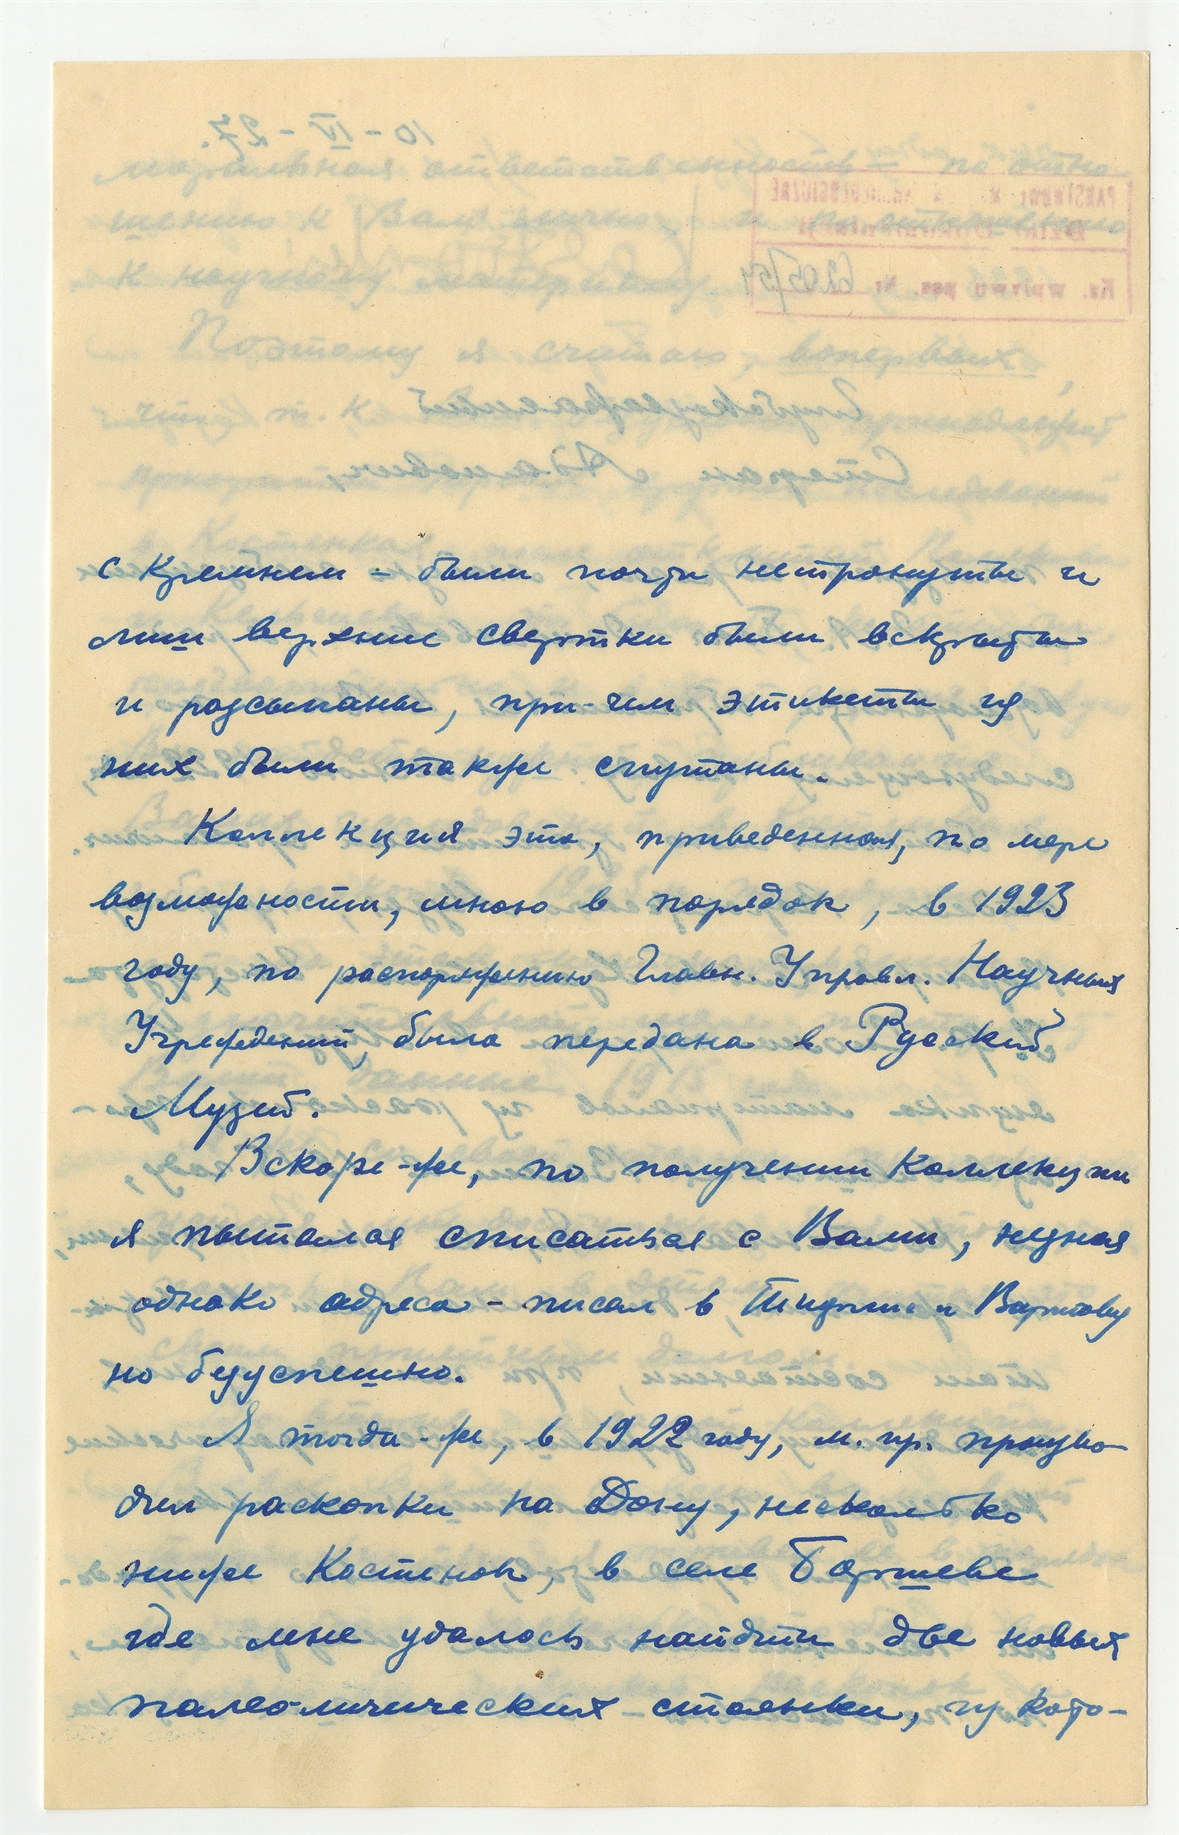 с кремнем - были почти нетронуты и
лиш верхние свертки были вскрыты
и рассыпаны, при-чем этикеты из
них были также спутаны.
Коллекция эта, приведенная, по мере
возможности, мною в порядок, в 1923
году, по распоряжению Главн. Управл. Научных
Учреждений, была передана в Русский
Музей.
Вскоре-же, по получении коллекции
я пытался списаться с Вами, не зная
однако адреса - писал в и Варшаву
но безуспешно.
Я тогда-же, в 1922 году, м. пр. произво-
дил раскопки на Дону, несколько
ниже Костенок, в селе Боршеве
где мне удалось найти две новых
палеолитических стоянки, из кото-